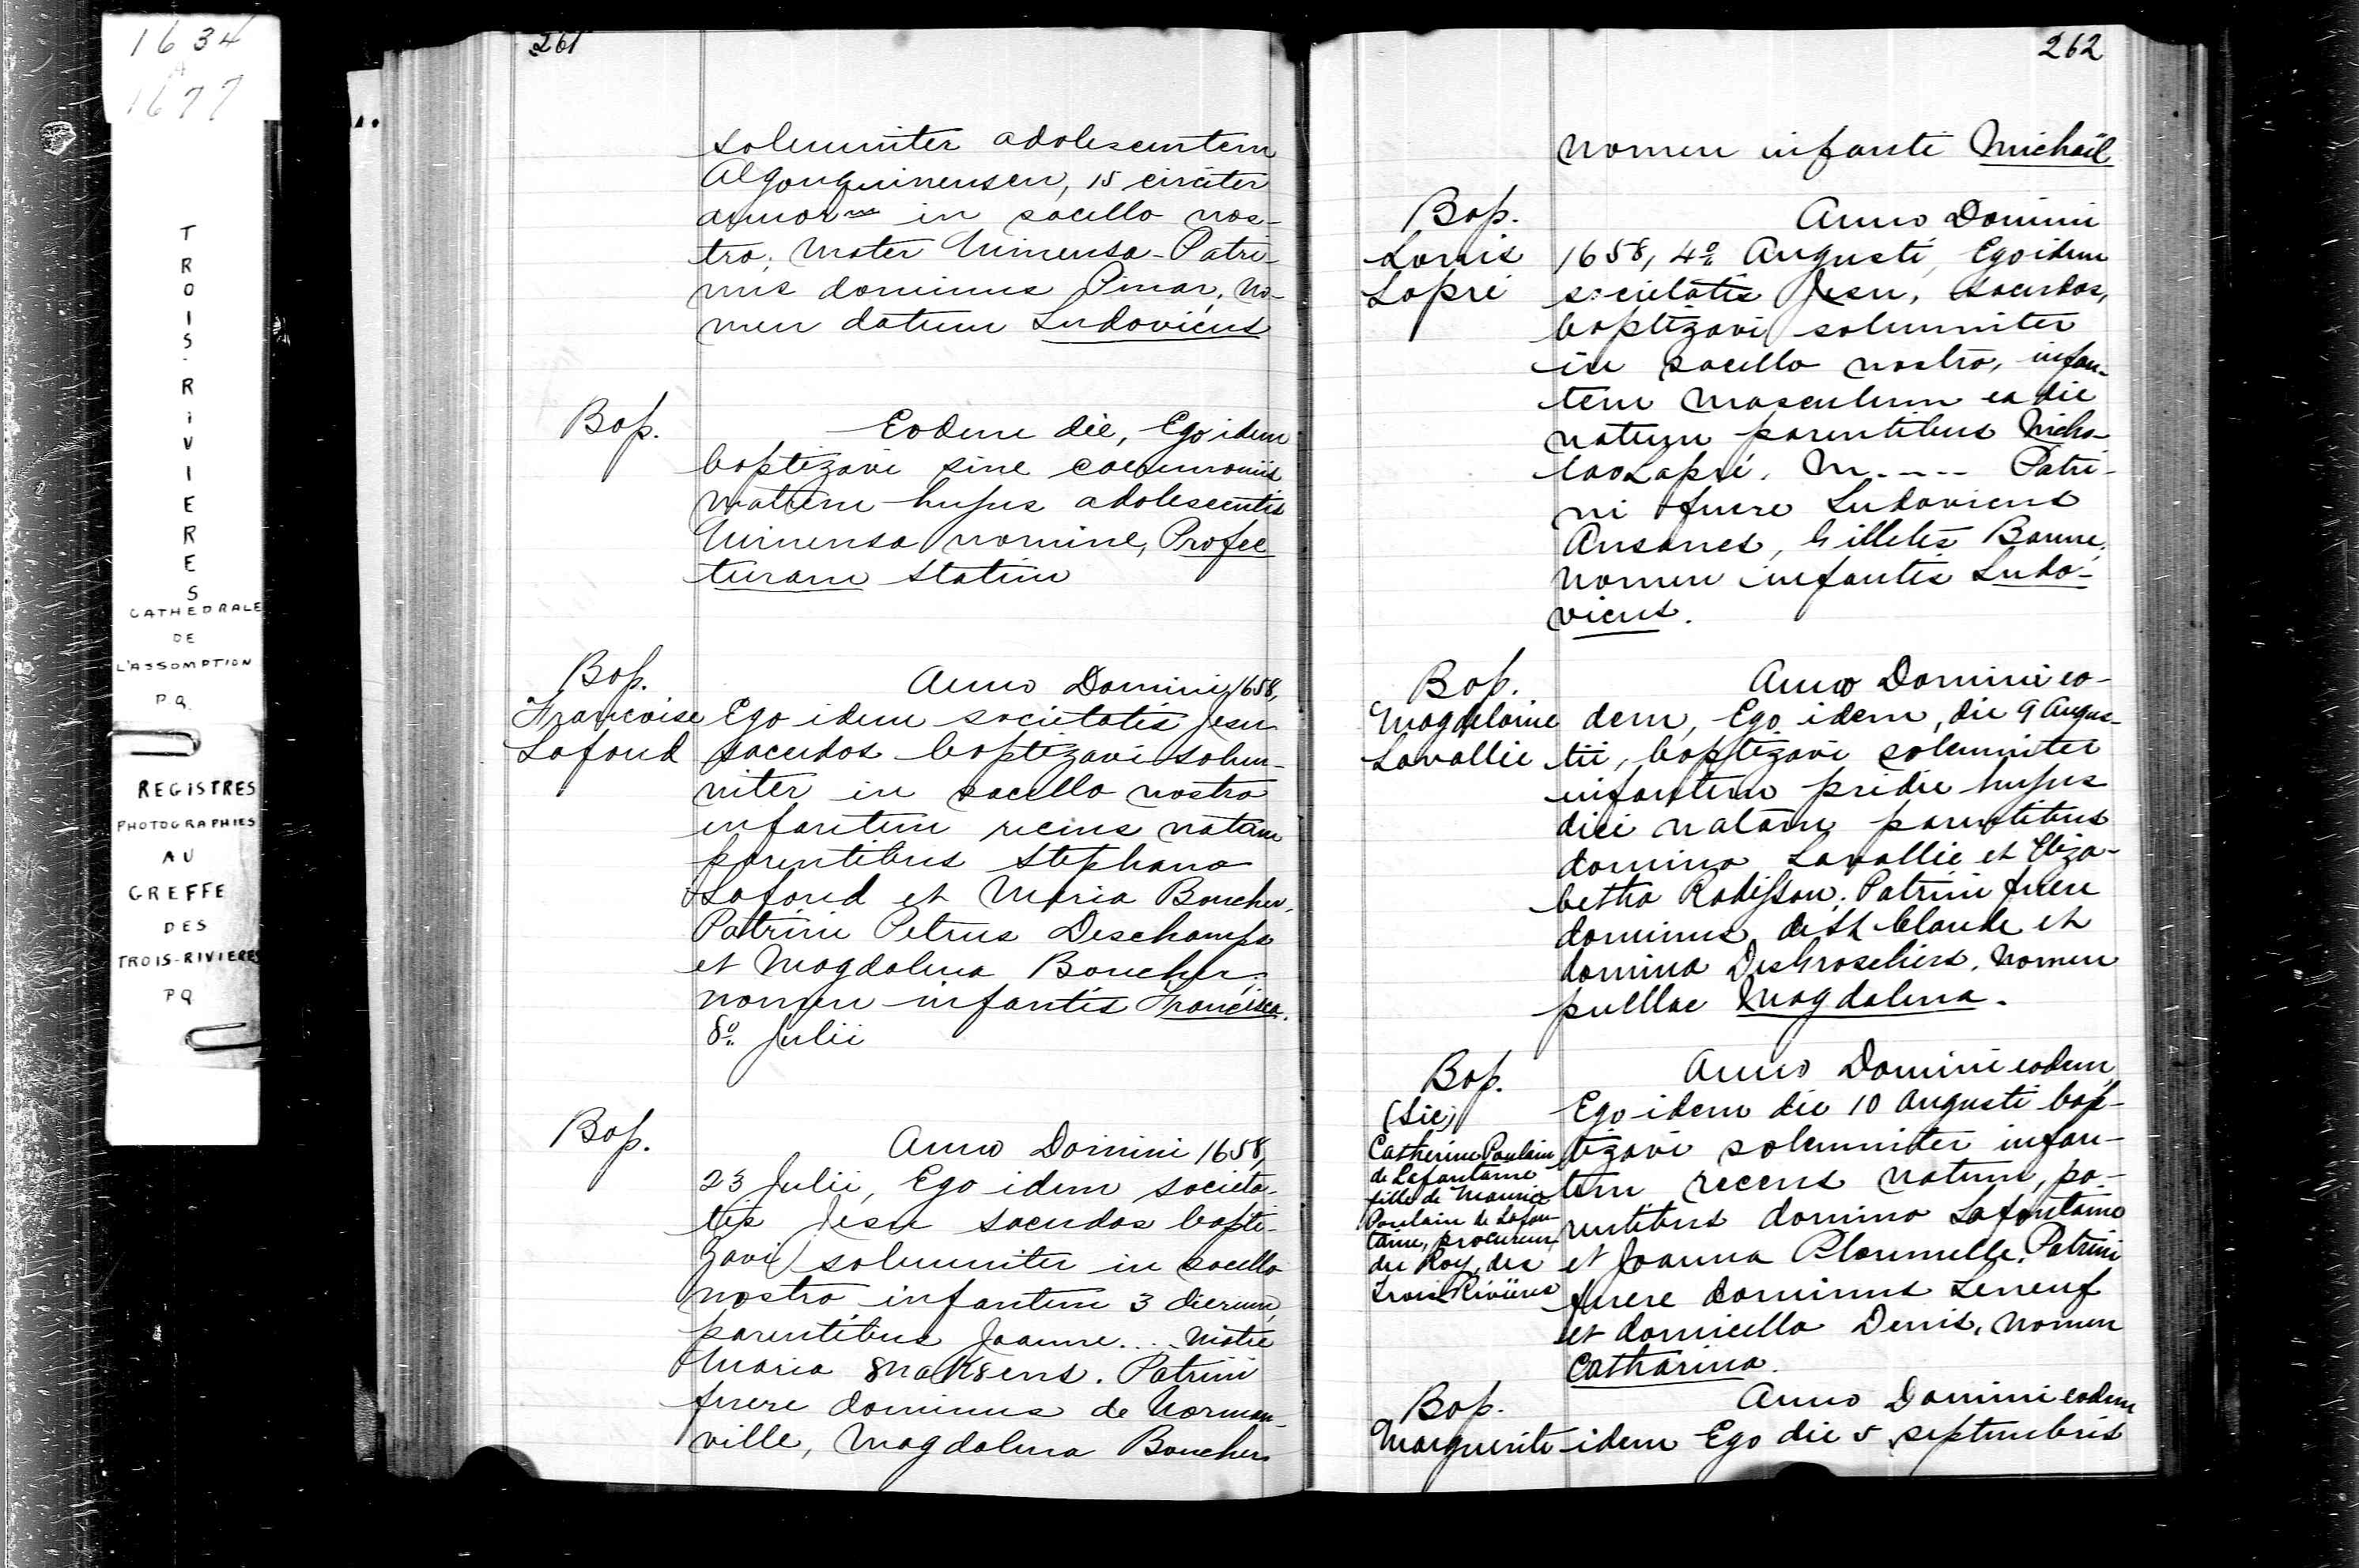 1634
A
1677
TROIS-RIVIERES
CATHEDRALE
DE
L'ASSOMPTION
P.Q.
REGISTRES
PHOTOGRAPHIES
AU
GREFFE
DES
TROIS-RIVIERES
PQ
261
solemniter adolescentem
Algonquinensem, 15 circiter
annorum in sacello nos-
tro, mater Uirinensa. Patri-
nus dominus Pinar, No-
men datum Ludovicus
Bap.
Eodem die, Ego idem
baptizavi sine caeremoniis
matrem hujus adolescentis
nomine, Profec
turam statim
Bap.
Françoise
Lafond
Anno Domini, 1658,
Ego idem societatis Jesu
sacerdos baptizavi solem-
niter in sacello nostro
infantem recens natam
parentibus Stephano
Lafond et Maria Boucher,
Patrini Petrus Deschamps
et Magdalena Boucher;
nomen infantis Francisca.
8º Julii
Bap.
Anno Domini 1658,
23 Julii, Ego idem societa-
tis Jesu sacerdos bapti-
zavi solemniter in sacello
nostro infantem 3 dierum,
parentibus Joanne.... Matre
Maria 8nak8ens. Patrini
fuere dominus de Norman-
ville, Magdalena Boucher
262
nomen infanti Michaël
Bap.
Louis
Lapré
Anno Domini
1658, 4º Augusti, Ego idem
societatis Jesu, sacerdos,
baptizavi solemniter
in sacello nostro, infan-
tem masculum ea die
natum parentibus Nicho-
lao Lapré. M.---- Patri-
ni fuere Ludovicus
Ansanes, Gilletes Banne,
nomen infantis Ludo-
vicus.
Bap.
Magdelaine
Lavallie
Anno Domini eo-
dem, Ego idem, die 9 Augus-
tii, baptizavi solemniter
infantem pridie hujus
diei natam parentibus
domino Lavallie et Eliza-
betha Radisson; Patrini fuere
dominus de St Claude et
domina DesGroseliers. Nomen
puellae Magdalena.
Bap.
(Sic)
Catherine Poulain
de Lafontaine
fille de Maurice
Poulain de Lafon-
taine, procureur
du Roy, des
Trois Rivières
Anno Domini eodem,
Ego idem die 10 Augusti bap-
tizavi solemniter infan-
tem recens natum, pa-
rentibus domino Lafontaine
et Joanna Plounelle. Patrini
fuere dominus Leneuf
et domicella Denis, nomen
Catharina.
Bap.
Marguerite
Anno Domini eodem
idem Ego die 5 septembris